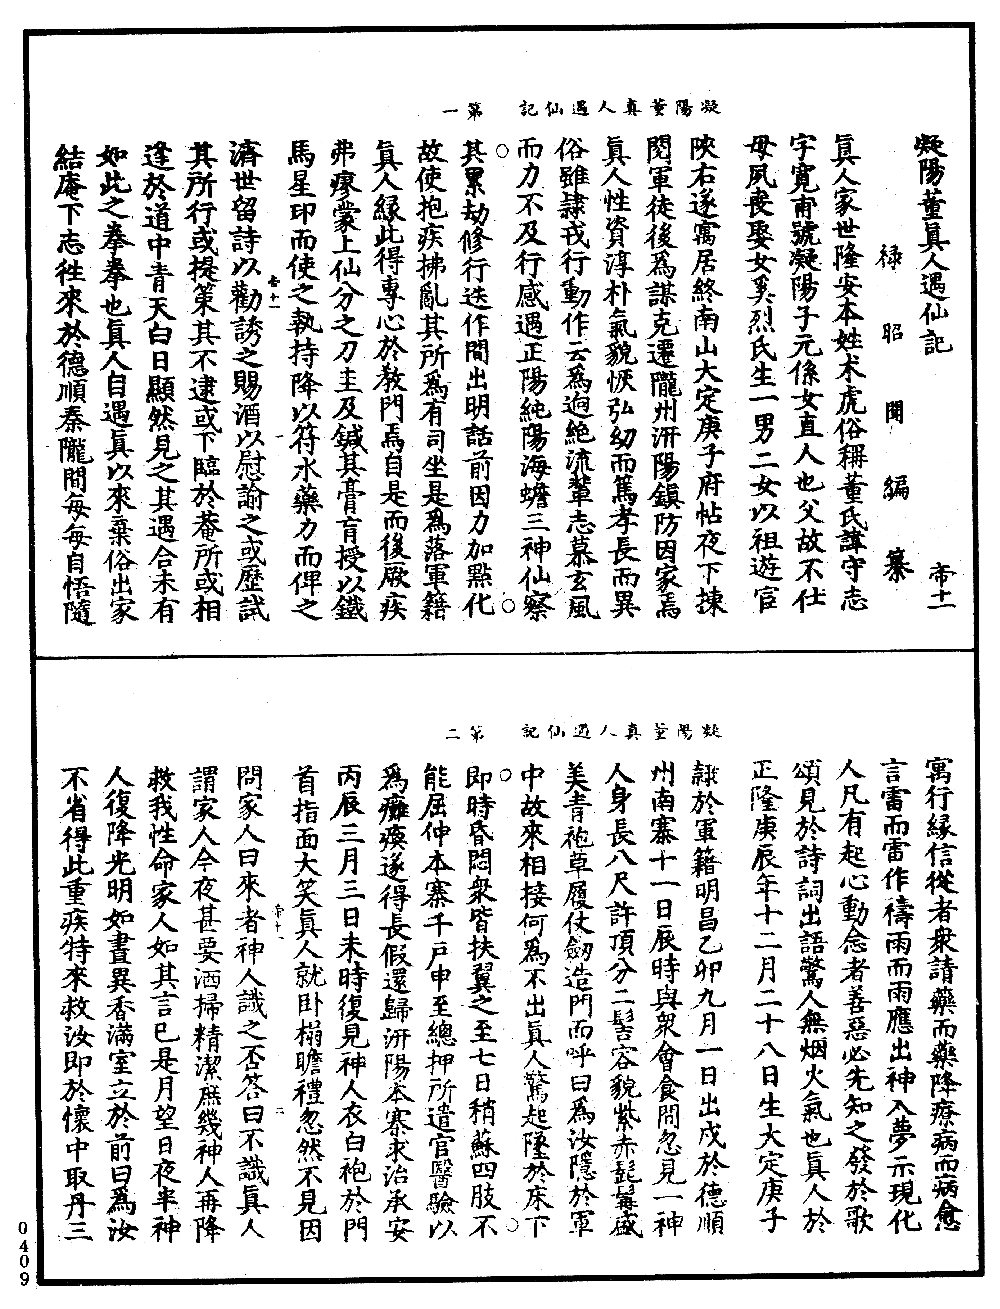 凝陽董真人遇仙記　第一
凝陽董真人遇仙記　帝十一
祿昭聞編纂
真人家世隆安本姓术虎俗稱董氏諱守志
字寬甫號凝陽子元係女直人也父故不仕
母夙喪娶女奚烈氏生一男二女以祖遊官
陝右遂寓居終南山大定庚子府帖夜下揀
閱軍徒後爲謀克遷隴州汧陽鎮防因家焉
真人性資淳朴氣貌恢弘幼而篤孝長而異
俗雖隸戎行動作云爲逈絶流輩志慕玄風
而力不及行感遇正陽純陽海蟾三神仙察
其累劫修行迭作間出明話前因力加點化
故使抱疾拂亂其所爲有司坐是爲落軍籍
真人緣此得專心於教門焉自是而後厥疾
弗瘳蒙上仙分之刀圭及鍼其膏肓授以鐵
馬星印而使之執持降以符水藥力而俾之
濟世留詩以勸誘之賜酒以慰諭之或歷試
其所行或提策其不逮或下臨於菴所或相
逢於道中青天白日顯然見之其遇合未有
如此之拳拳也真人自遇真以來棄俗出家
結庵下志徃來於德順秦隴間每每自悟隨
凝陽董真人遇仙記　第二
寓行緣信從者衆請藥而藥降療病而病愈
言雷而雷作禱雨而雨應出神入夢示現化
人凡有起心動念者善惡必先知之發於歌
頌見於詩詞出語驚人無烟火氣也真人於
正隆庚辰年十二月二十八日生大定庚子
隸於軍籍明昌乙卯九月一日出戍於德順
州南寨十一日辰時與衆會食間忽見一神
人身長八尺許頂分二髻容貌紫赤髭髯盛
美青袍草履仗劒造門而呼曰爲汝隱於軍
中故來相接何爲不出真人驚起墜於床下
即時昏悶衆皆扶翼之至七日稍蘇四肢不
能屈伸本寨千戶申至總押所遣官醫驗以
爲癱瘓遂得長假還歸汧陽本寨求治承安
丙辰三月三日未時復見神人衣白袍於門
首指面大笑真人就卧榻瞻禮忽然不見因
問家人曰來者神人識之否答曰不識真人
謂家人今夜甚要洒掃精潔庶幾神人再降
救我性命家人如其言已是月望日夜半神
人復降光明如晝異香滿室立於前曰爲汝
不省得此重疾特來救汝即於懷中取丹三
0409